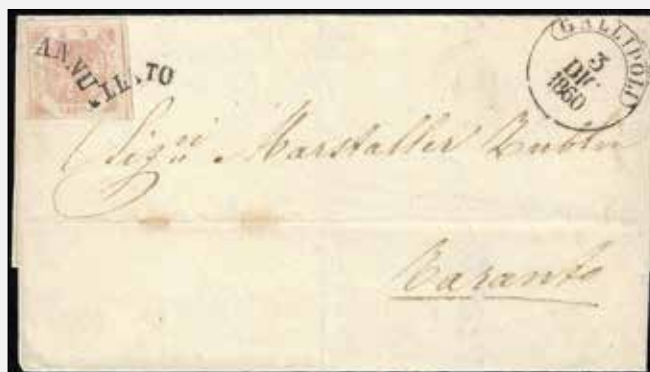 ANNULLATO
GALLIPOLI
3
DIC.
1860
Sig.ri Marstaller
Taranto